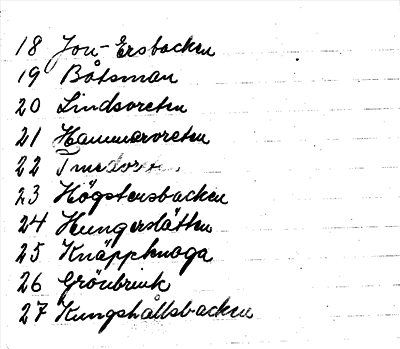 18 Jon-Ersbacken
19 Båtsman
20 Lindsveten
21 Hammarveten
22
23 Högstensbacken
24 Hungerslätten
25 Knäppknaga
26 Grönbrink
27 Kungshållsbacken